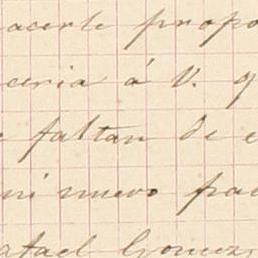 acerle propo
ceria á V. q
e faltan de e
mi nuevo pad
afael Gomez